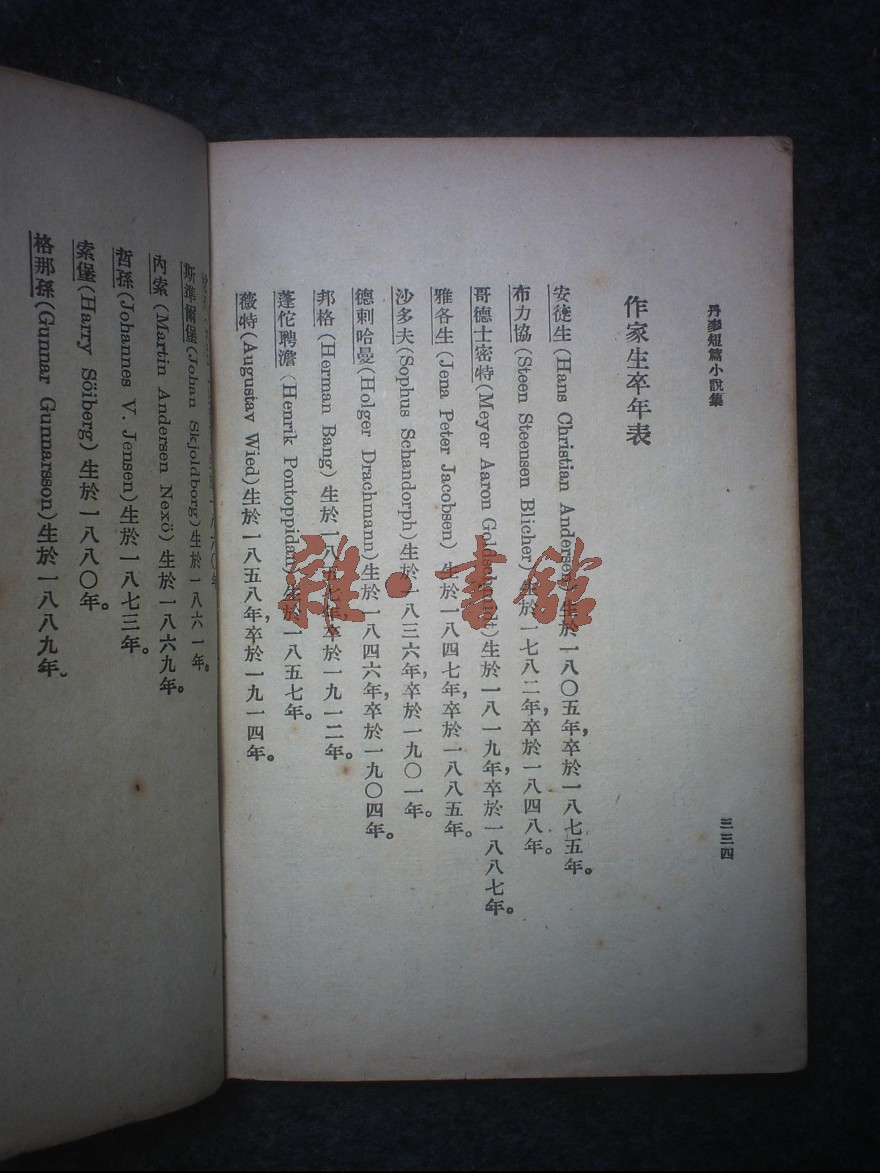 丹麥短篇小說集
三三四
作家生卒年表
安徒生(Hans Christian Andersen)生於一八〇五年，卒於一八七五年。
布力協(Steen Steensen Blicher)生於一七八二年，卒於一八四八年。
哥德士密特(Meyer Aaron Goldschmidt)生於一八一九年，卒於一八八七年。
雅各生(Jena Peter Jacobsen)生於一八四七年，卒於一八八五年。
沙多夫(Sophus Schandorph)生於一八三六年，卒於一九〇一年。
德剌哈曼(Holger Drachmann)生於一八四六年，卒於一九〇四年。
邦格(Herman Bang)生於一八五七年，卒於一九一二年。
蓬佗聘澹(Henrik Pontoppidan)生於一八五七年。
薇特(Augustav Wied)生於一八五八年，卒於一九一四年。
斯準爾堡(Johan Skjoldborg)生於一八六一年。
內索(Martin Andersen Nexö)生於一八六九年。
哲孫(Johannes V. Jensen)生於一八七三年。
索堡(Harry Söiberg)生於一八八〇年。
格那孫(Gunnar Gunnarsson)生於一八八九年。
雜·書館